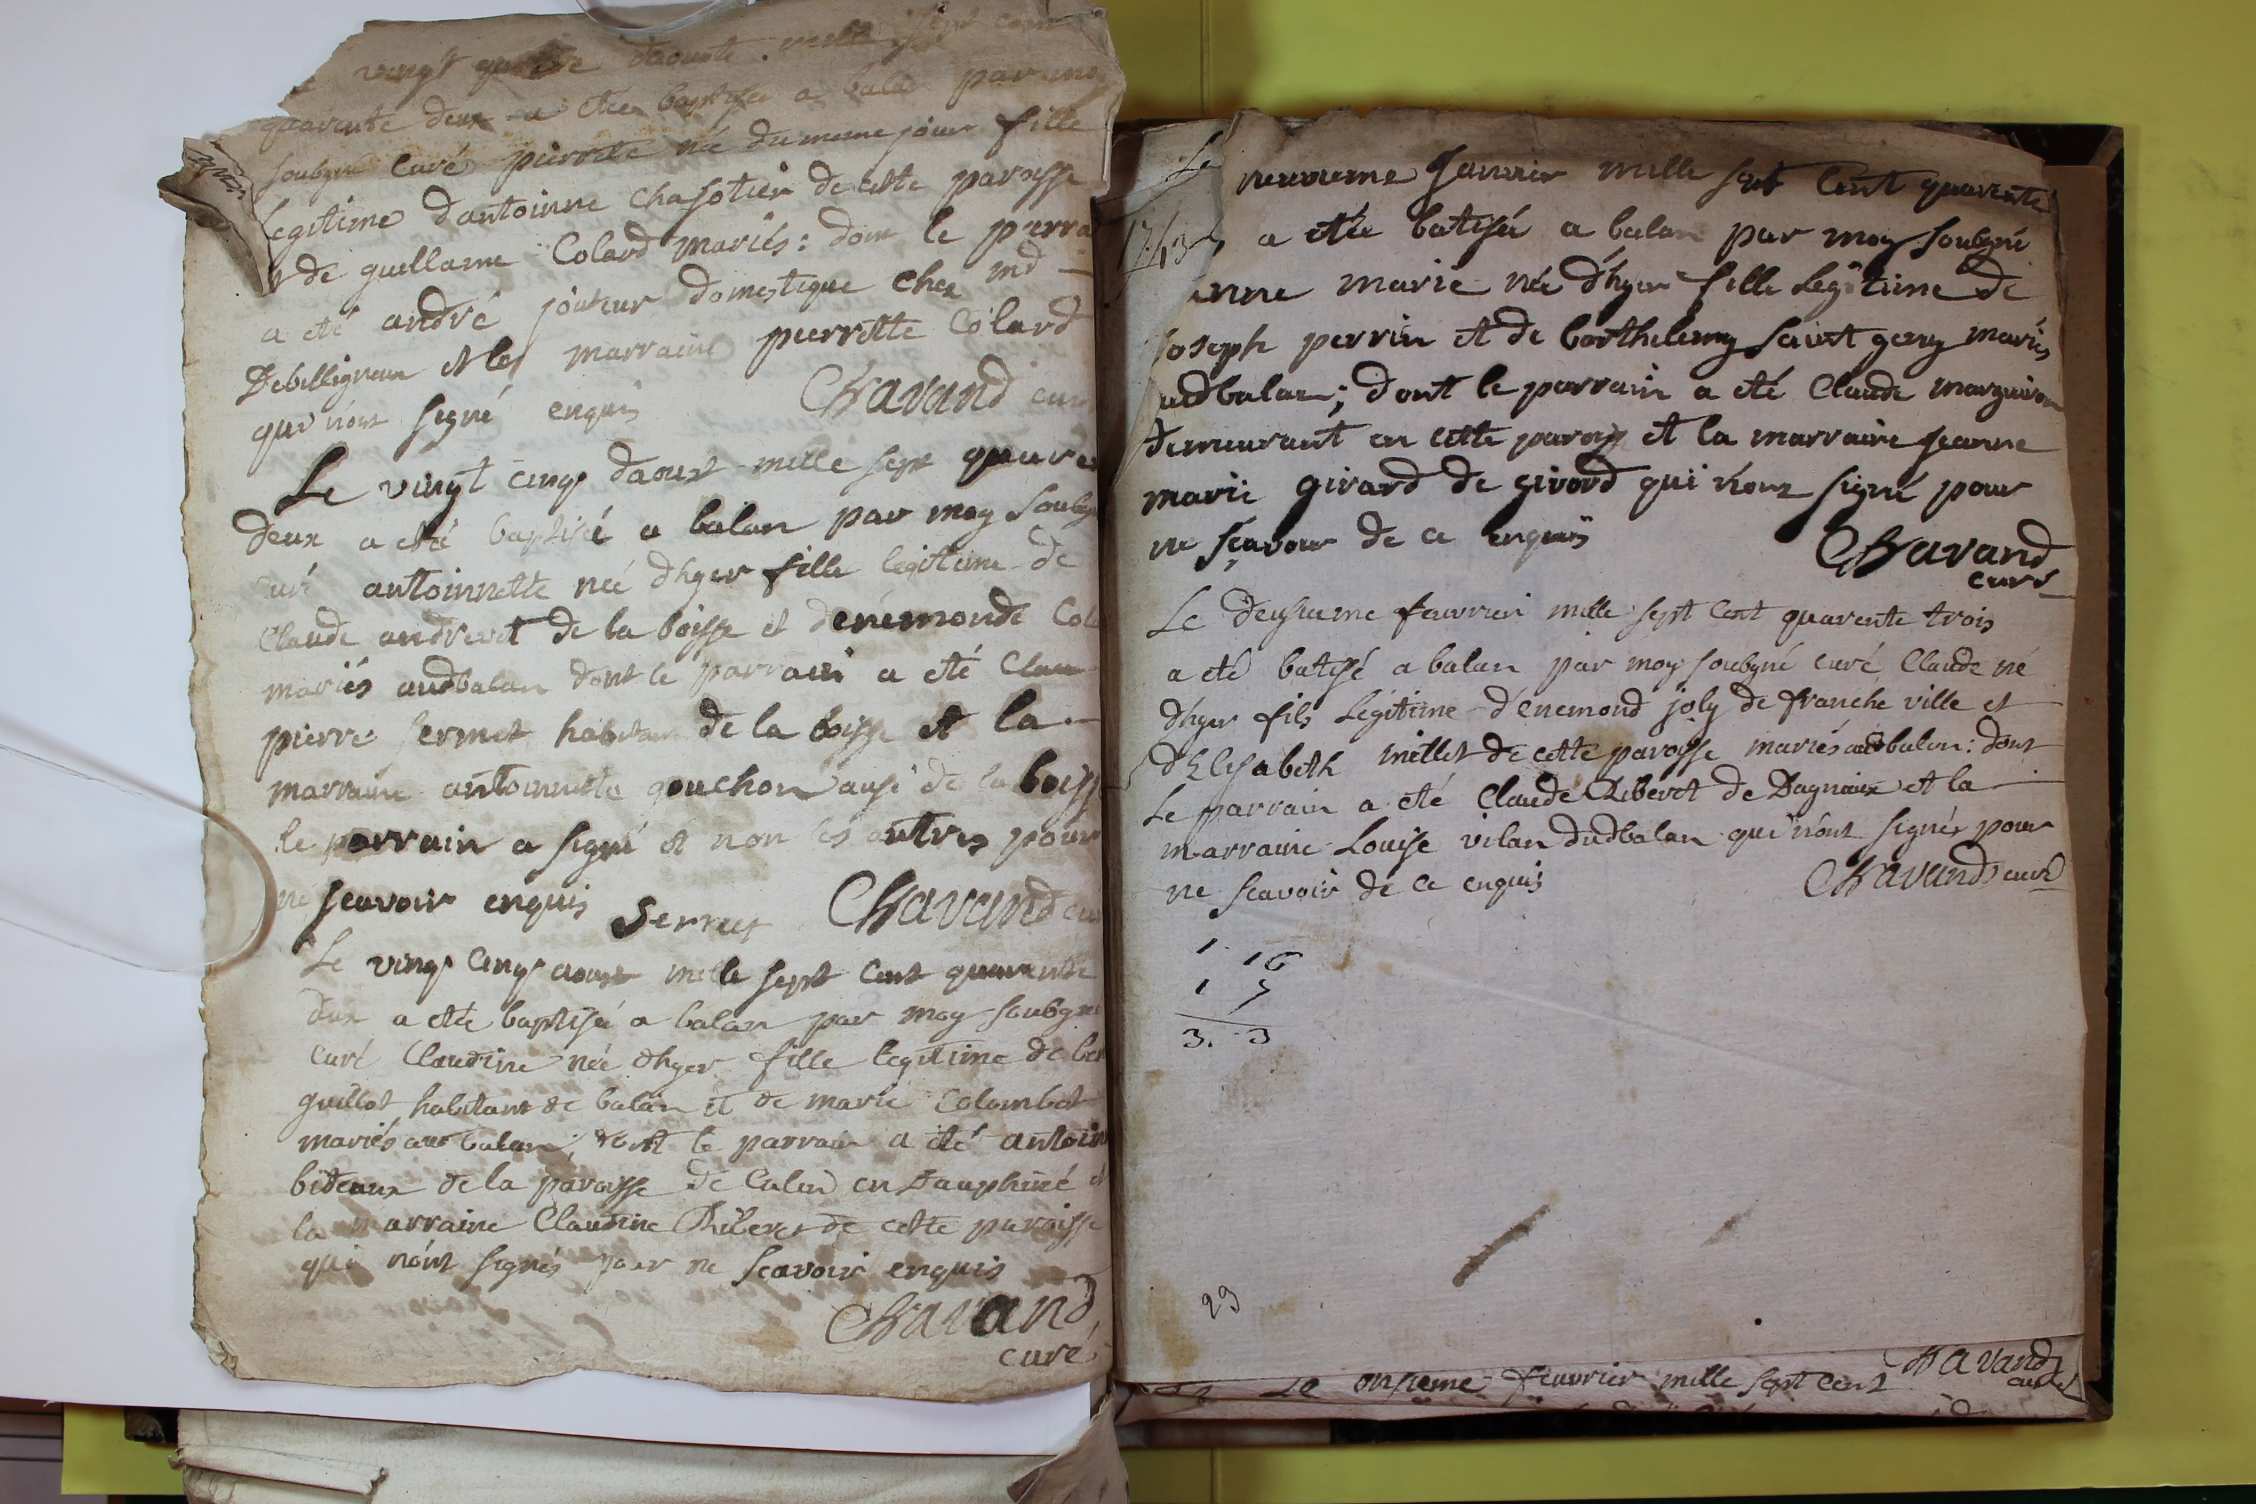 vingt quatre daouste mille sept cent
quarente deux a etée baptisée a balan par moy
soubgné curé pierrette née du meme jour fille
legitime dantoinne chasotier de cette paroisse
de guillaume Colard mariés: dont le parra
a eté andré jouteur domestique chez md
Debelligneux et la marraine pierrette Colard
qui n'ont signé enquis Chavand curé
Le vingt cinq daoust mille sept quare
deux a eté baptisée a balan par moy soubg
curé antoinnette née d'hyer fille legitime de
Claude andrevet de la boisse et denémonde Col
mariés audbalan dont le parrain a eté Clau
pierre sermet habitant de la boisse et la
marraine antoinnette gouchon ausi de la boiss
le parrain a signé et non les autres pour
ne scavoir enquis Sermet Chavand cu
Le vingt cinq aoust mille sept cent quarente
deux a etée baptisée a balan par moy soubgné
curé Claudine née d'hyer fille legitime de be
guillot habitant de balan et de marie Colombet
mariés aud balan; dont le parrain a eté antoin
bideaux de la paroisse de Calin en Dauphiné et
la marraine Claudine Riberet de cette paroisse
qui n'ont signés pour ne scavoir enquis
Chavand
curé
Le neuvieme Janvier mille sept Cent quarente
1743 a etée batisée a balan par moy soubgné
anne marie née d'hyer fille legitime de
Joseph perrin et de barthelemy saint geny mariés
audbalan; dont le parrain a eté Claude marguiron
demeurant en cette paroisse et la marraine jeanne
marie girard de girord qui n'ont signé pour
ne sçavoir de ce enquis Chavand
curé
Le deusieme feuvrier mille sept cent quarente trois
a eté batisé a balan par moy soubgné curé Claude né
d'hyer fils Légitime d'énemond joly de franche ville et
d'Elisabeth millet de cette paroisse mariés audbalan: dont
Le parrain a eté Claude Riberet de Dagnieux et la
marraine Louise vilan dudbalan qui n'ont signés pour
ne scavoir de ce enquis Chavand curé
1 16
1 7
3. 3
23
Chavand
curé
Le onsieme feuvrier mille sept cent